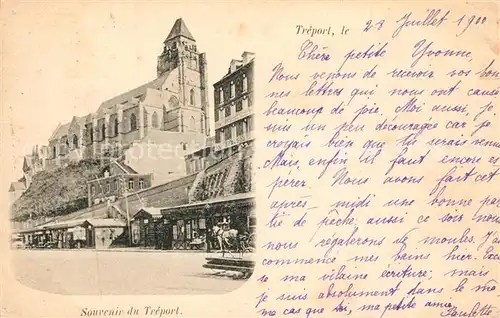 Tréport, le 28 Juillet 1900
Chère petite Yvonne,
Nous venons de recevoir vos bon
nes lettres qui nous ont causé
beaucoup de joie. Moi aussi, je
suis un peu découragée car je
croyais bien que tu serais venue
Mais, enfin il faut encore es
pérer. Nous avons fait cet
après-midi une bonne par
tie de pêche; aussi ce soir nous
nous régalerons de moules. J'ai
commencé mes bains hier. Excu
se ma vilaine écriture; mais
je suis absolument dans le mê
me cas que toi, ma petite amie.
Paulette
Souvenir du Tréport.